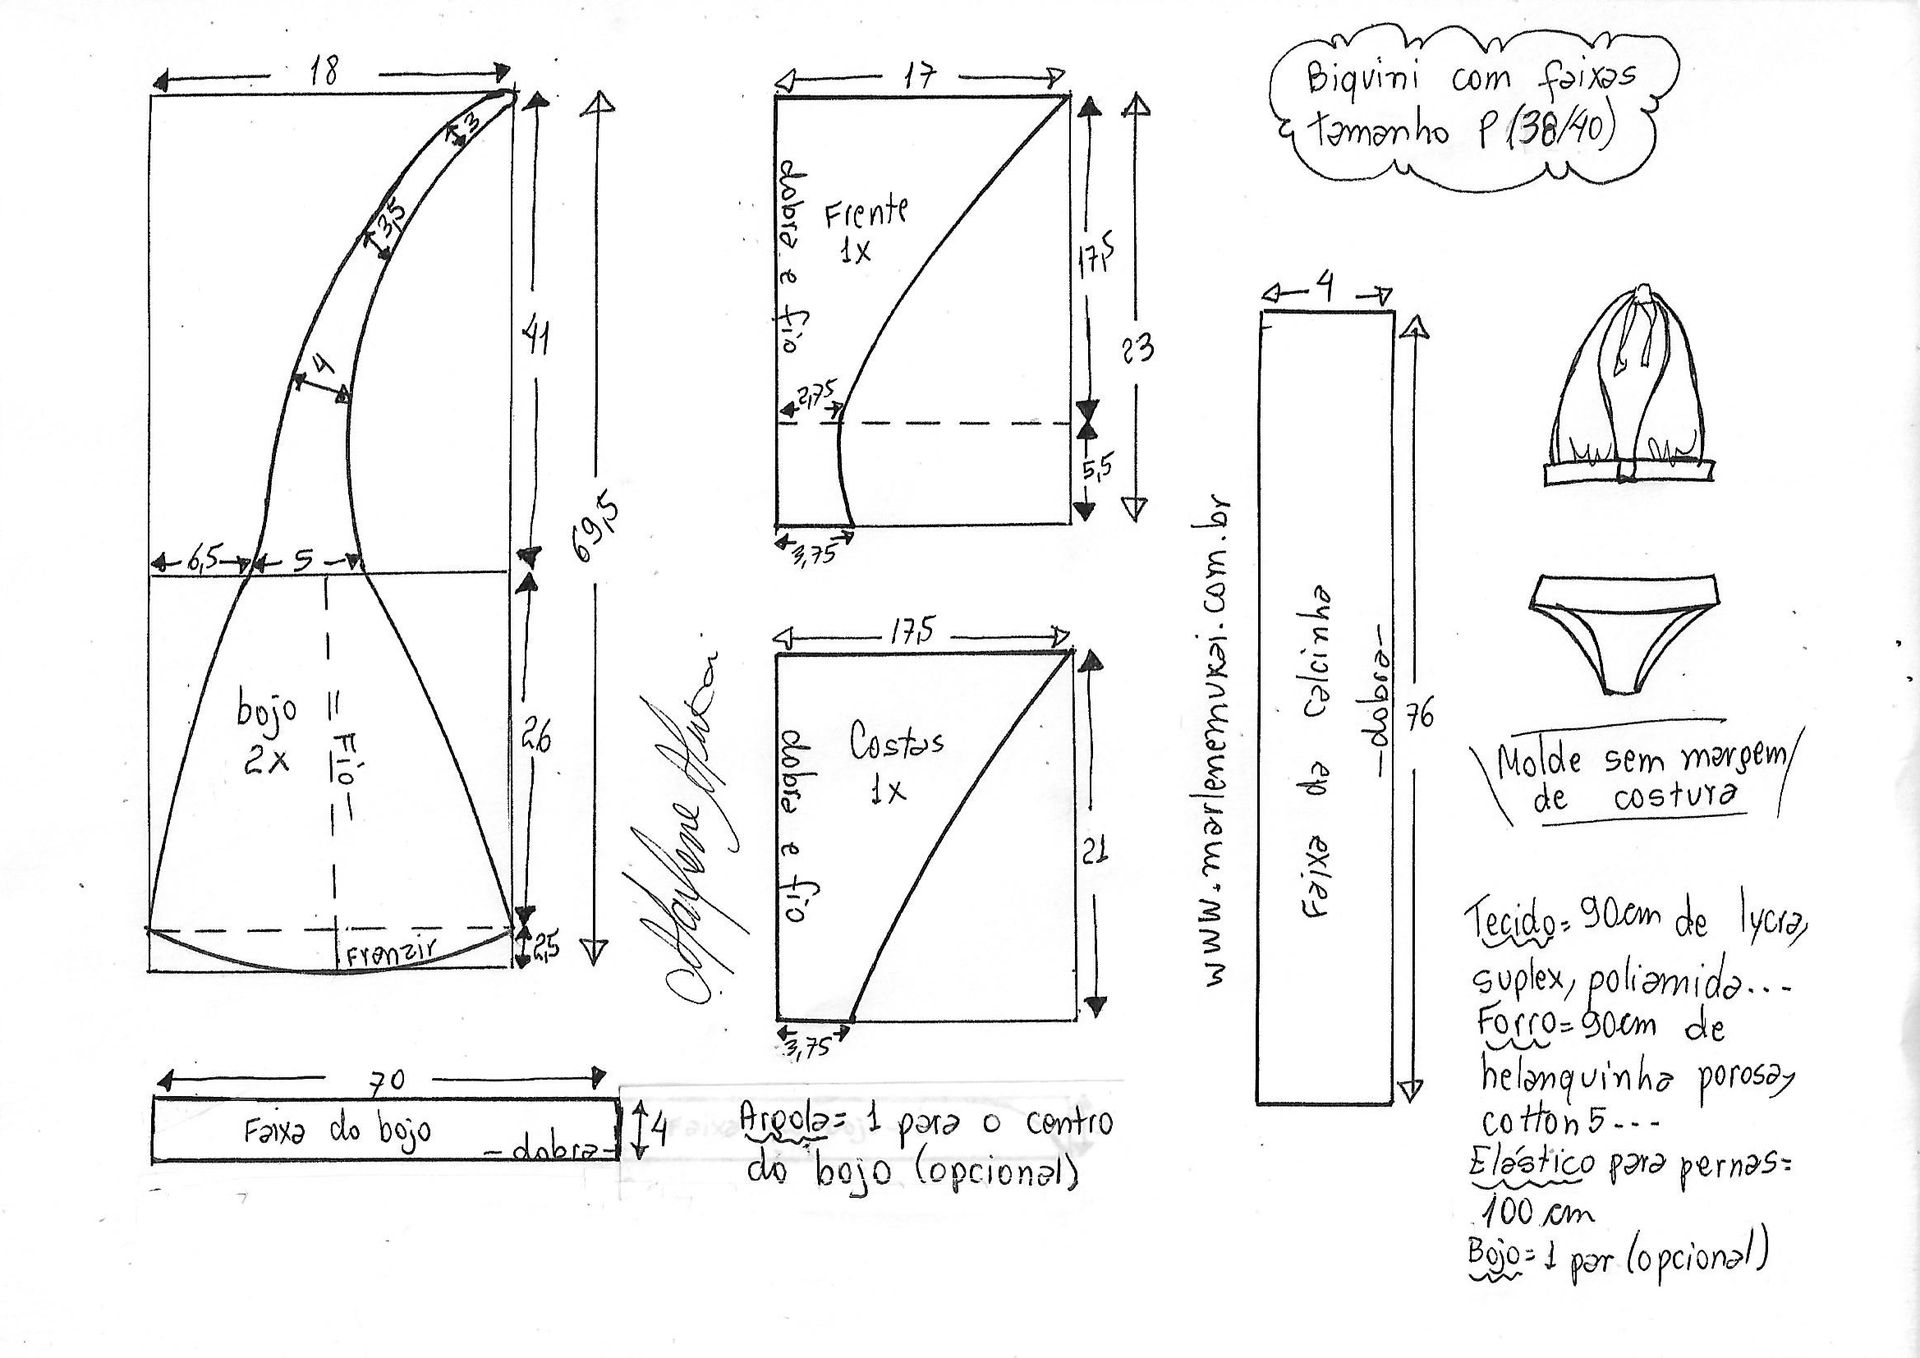 Biquini com faixas
tamanho P (38/40)
18
3
3,5
4
41
69,5
6,5
5
bojo
2x
= Fio -
26
Franzir
2,5
70
Faixa do bojo
- dobra -
4
17
dobra e fio
Frente
1x
17,5
23
2,75
5,5
3,75
17,5
dobra e fio
Costas
1x
21
3,75
Argola = 1 para o centro
do bojo (opcional)
www.marlenemukai.com.br
4
Faixa da calcinha
- dobra -
76
Molde sem margem
de costura
Tecido = 90cm de lycra,
suplex, poliamida...
Forro = 90cm de
helanquinha porosa,
cotton 5---
Elástico para pernas =
100 cm
Bojo = 1 par (opcional)